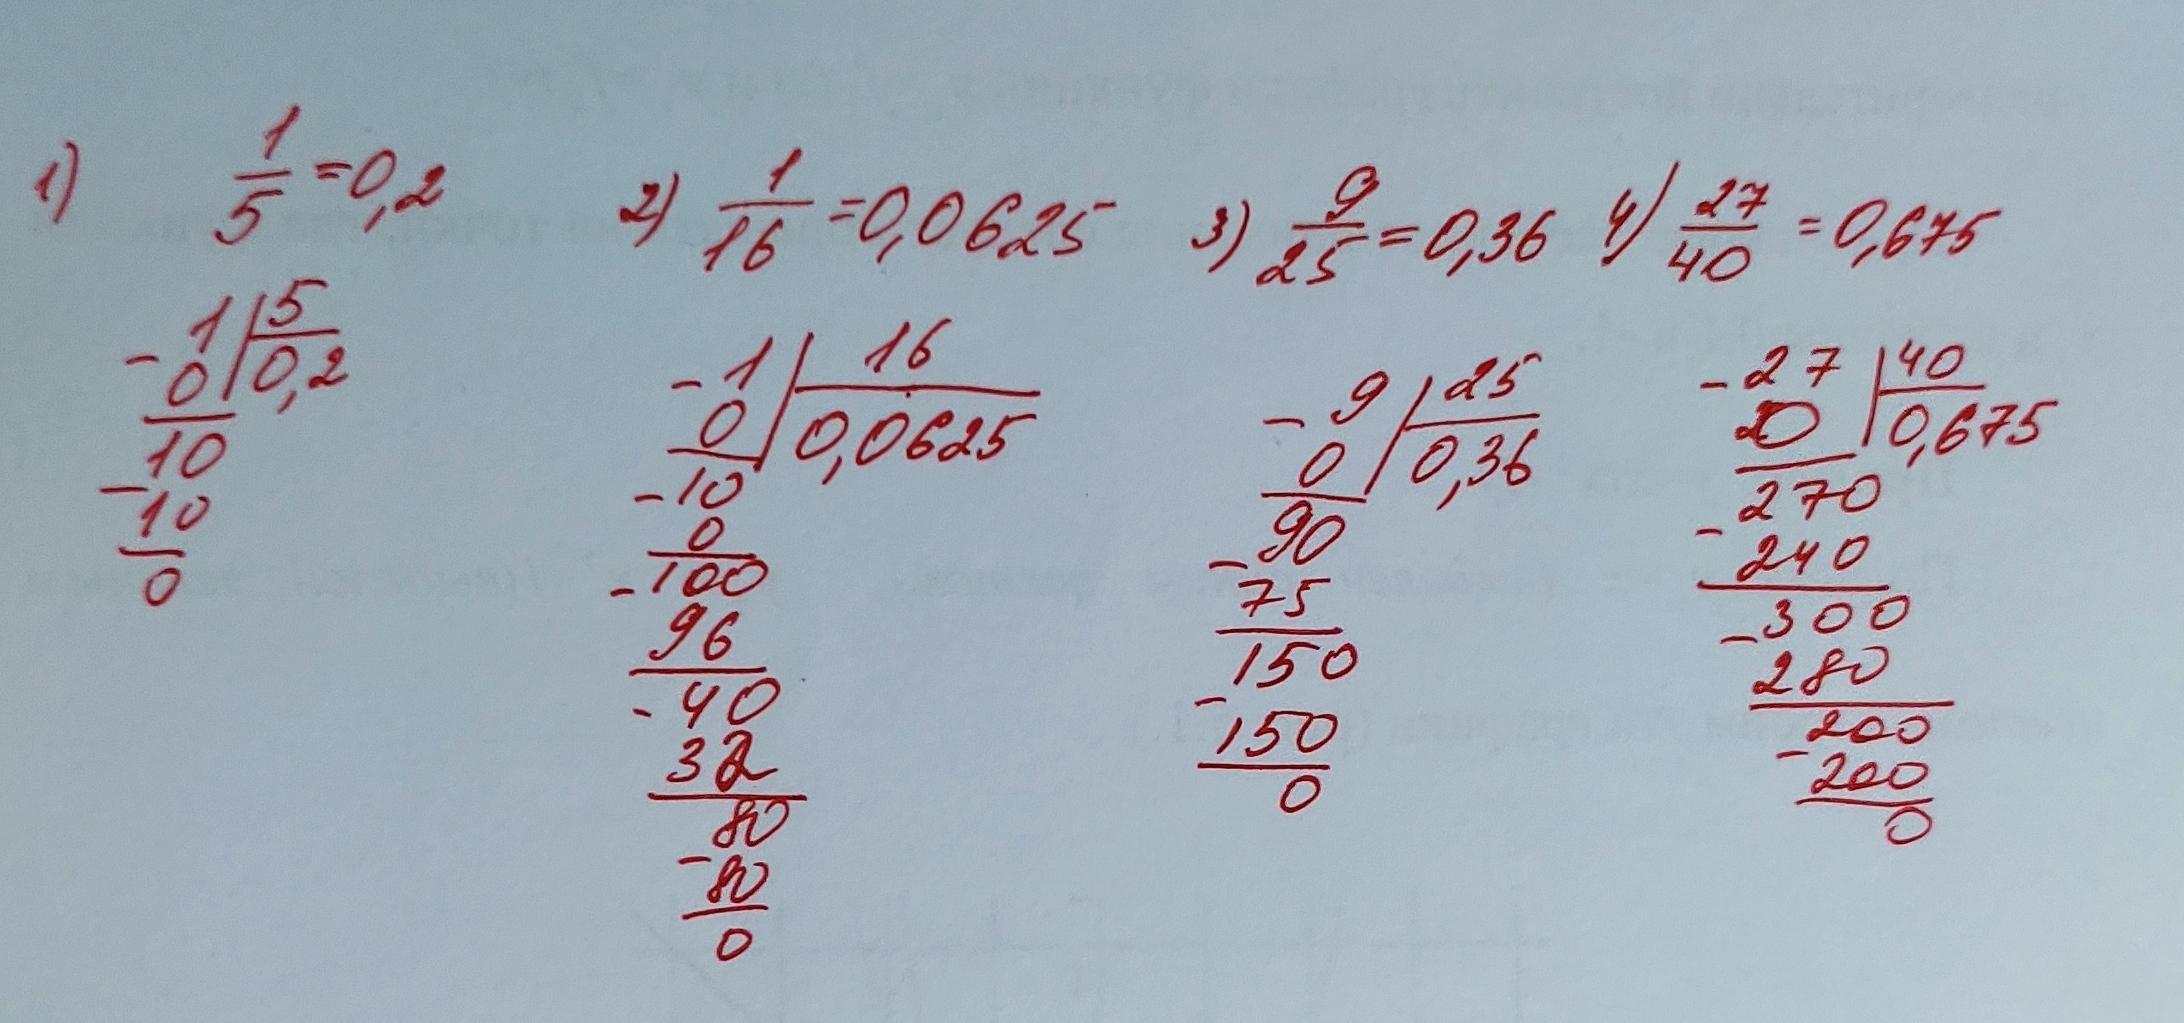 1) 1/5 = 0,2
- 1 | 5
0 | 0,2
10
- 10
0
2) 1/16 = 0,0625
- 1 | 16
0 | 0,0625
- 10
0
- 100
96
- 40
32
80
- 80
0
3) 9/25 = 0,36
- 9 | 25
0 | 0,36
90
- 75
150
- 150
0
4) 27/40 = 0,675
- 27 | 40
0 | 0,675
270
- 240
300
- 280
200
- 200
0